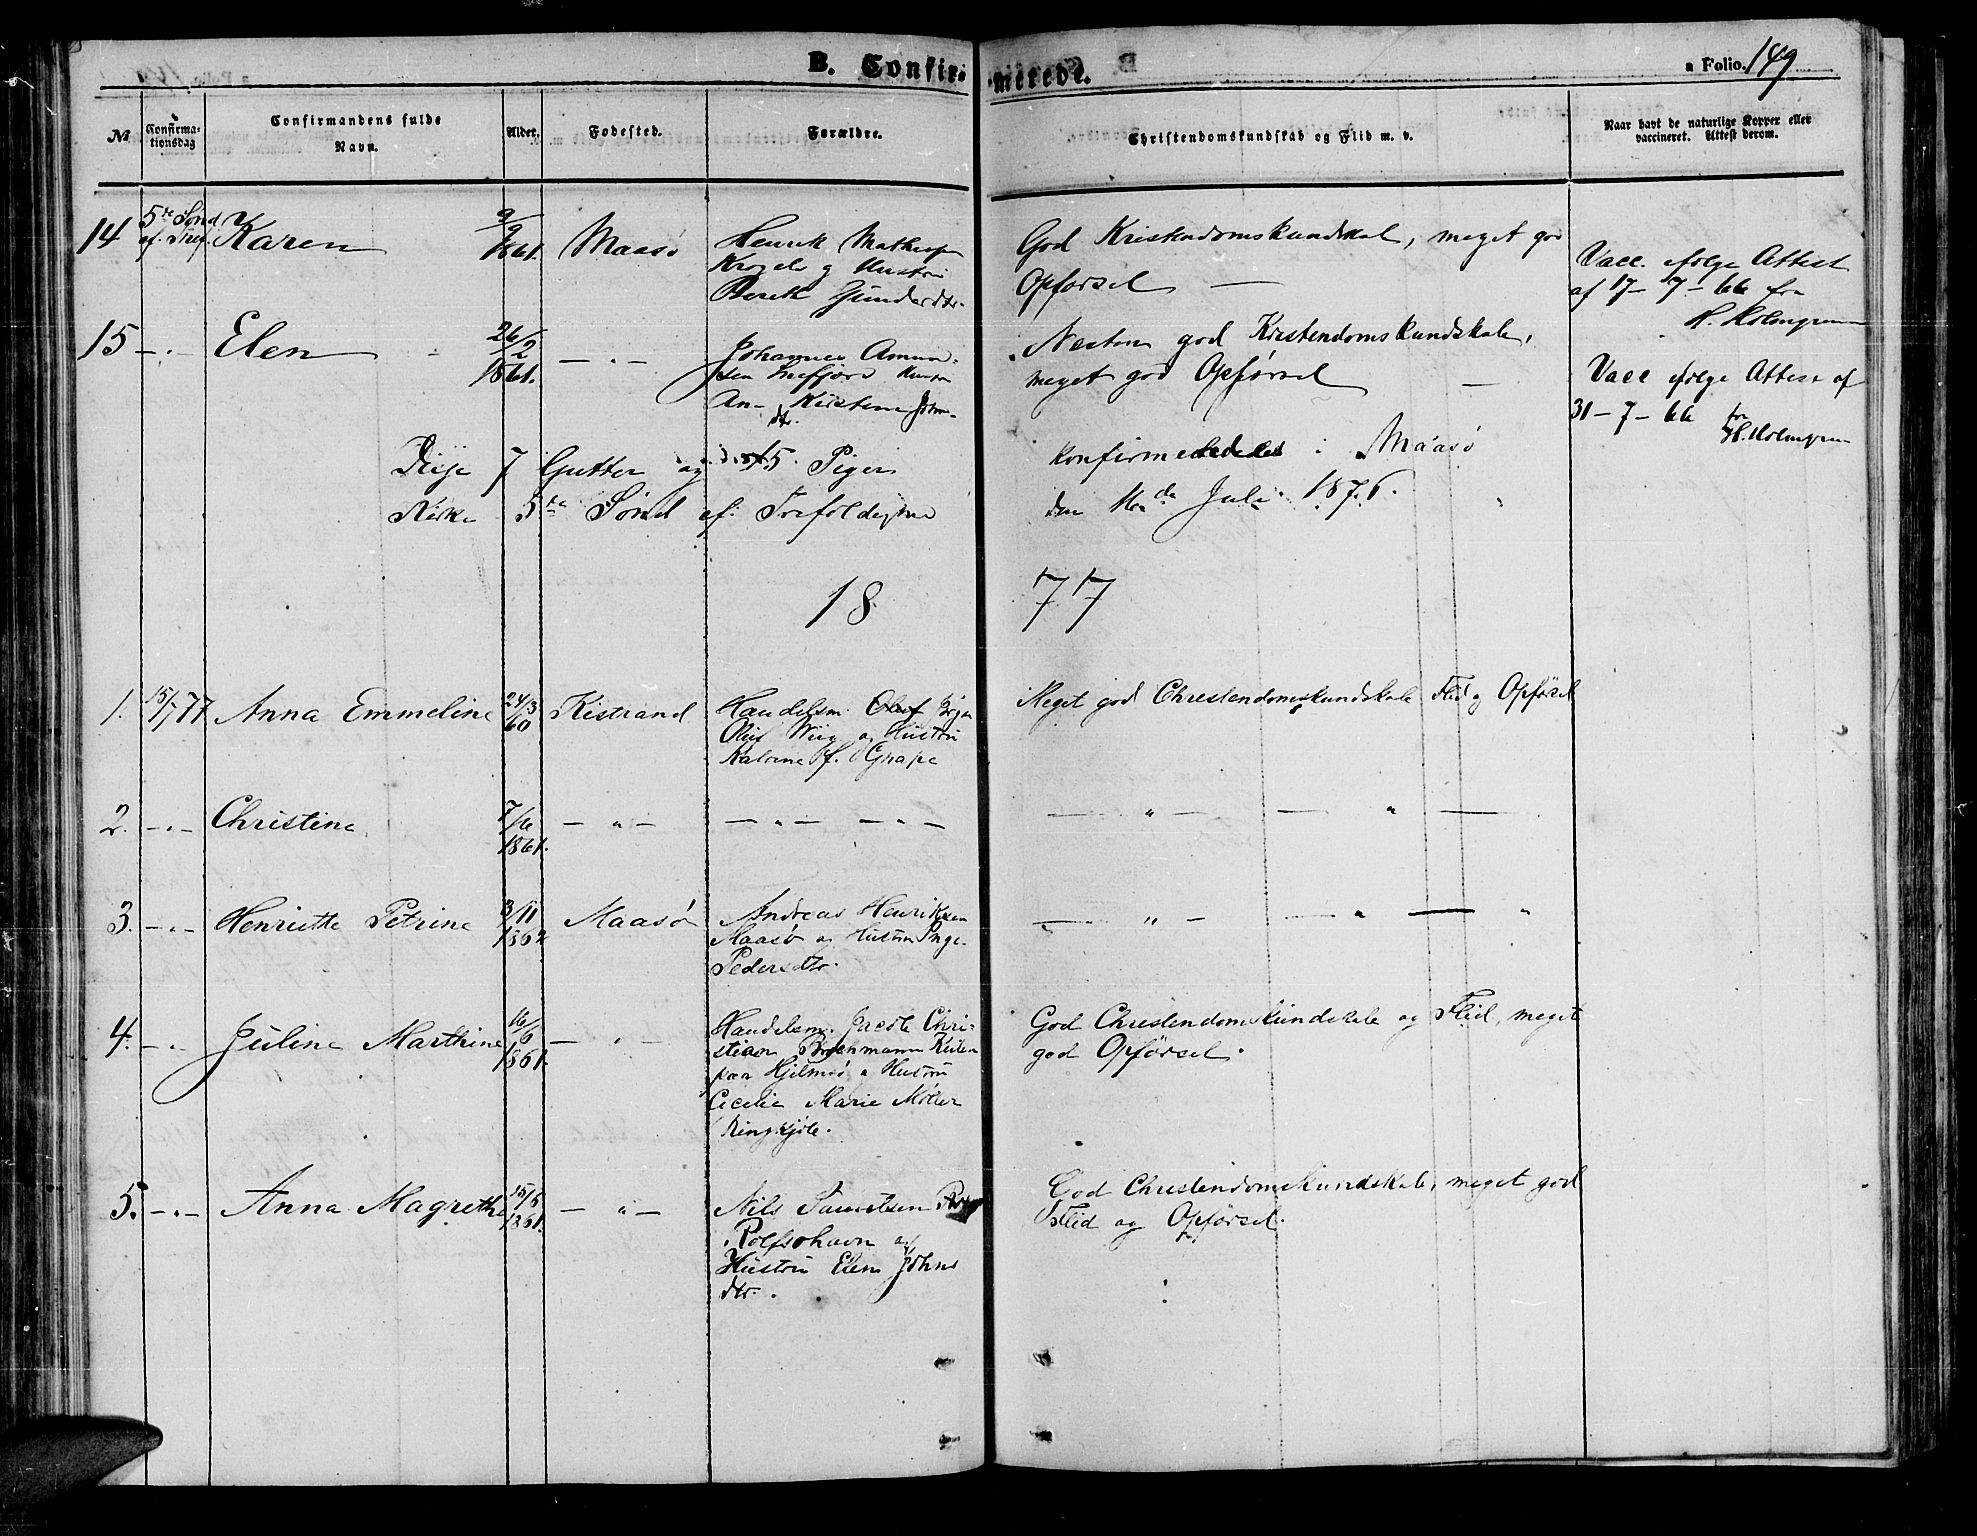 B. Confirmerede.
a Folio. 149
№
Confirmationsdag
Confirmandens fulde Navn.
Alder.
Fødested.
Forældre.
Christendomskundskab og Flid m. v.
Naar havt de naturlige Kopper eller vaccineret. Attest derom.
14 5te Sønd. ef. Tref. Karen 9/9 1861. Maasø Henrik
og Hustru
God Kristendomskundskab, meget god
Opførsel —
Vacc. ifølge Attest
af 17-7-66 fra
H. Holmgren
15 — " — Elen 26/2 1861. — " — Johannes Amun-
sen
An. Kristine Johns-
dtr.
Nesten god Kristendomskundskab,
meget god Opførsel —
Vacc ifølge Attest af
31-7-66 fra
H. Holmgren
Disse 7 Gutter og 5 Piger konfirmeredes i Maasø
Kirke 5te Sønd ef. Trefoldighed den 16de Juli 1876.
18 77
1. 15/7 77 Anna Emmeline 24/3 60 Kistrand Handelsm.
Oluf Wiig og Hustru
Katrine f. Grape
Meget god Christendomskundskab Flid og Opførsel
2. — " — Christine 7/6 1861. — " — — " — — " —
— " — — " —
3. — " — Henriette Petrine 3/11 1862 Maasø Andreas Henriksen
Maasø og Hustru Inge
Pedersdtr.
— " — — " — "
4. — " — Juline Marthine 16/6 1861. — " — Handelsm. Jacob Chri-
stian
paa Hjelmsø og Hustru
Cecilie Marie Møller
God Christendomskundskab og Flid, meget
god Opførsel.
5. — " — Anna Magrethe 15/5 1861. — " — Nils Samuelsen
Rolfsøhavn og
Hustru Elen Johns
dtr.
God Christendomskundskab, meget god
Flid og Opførsel.